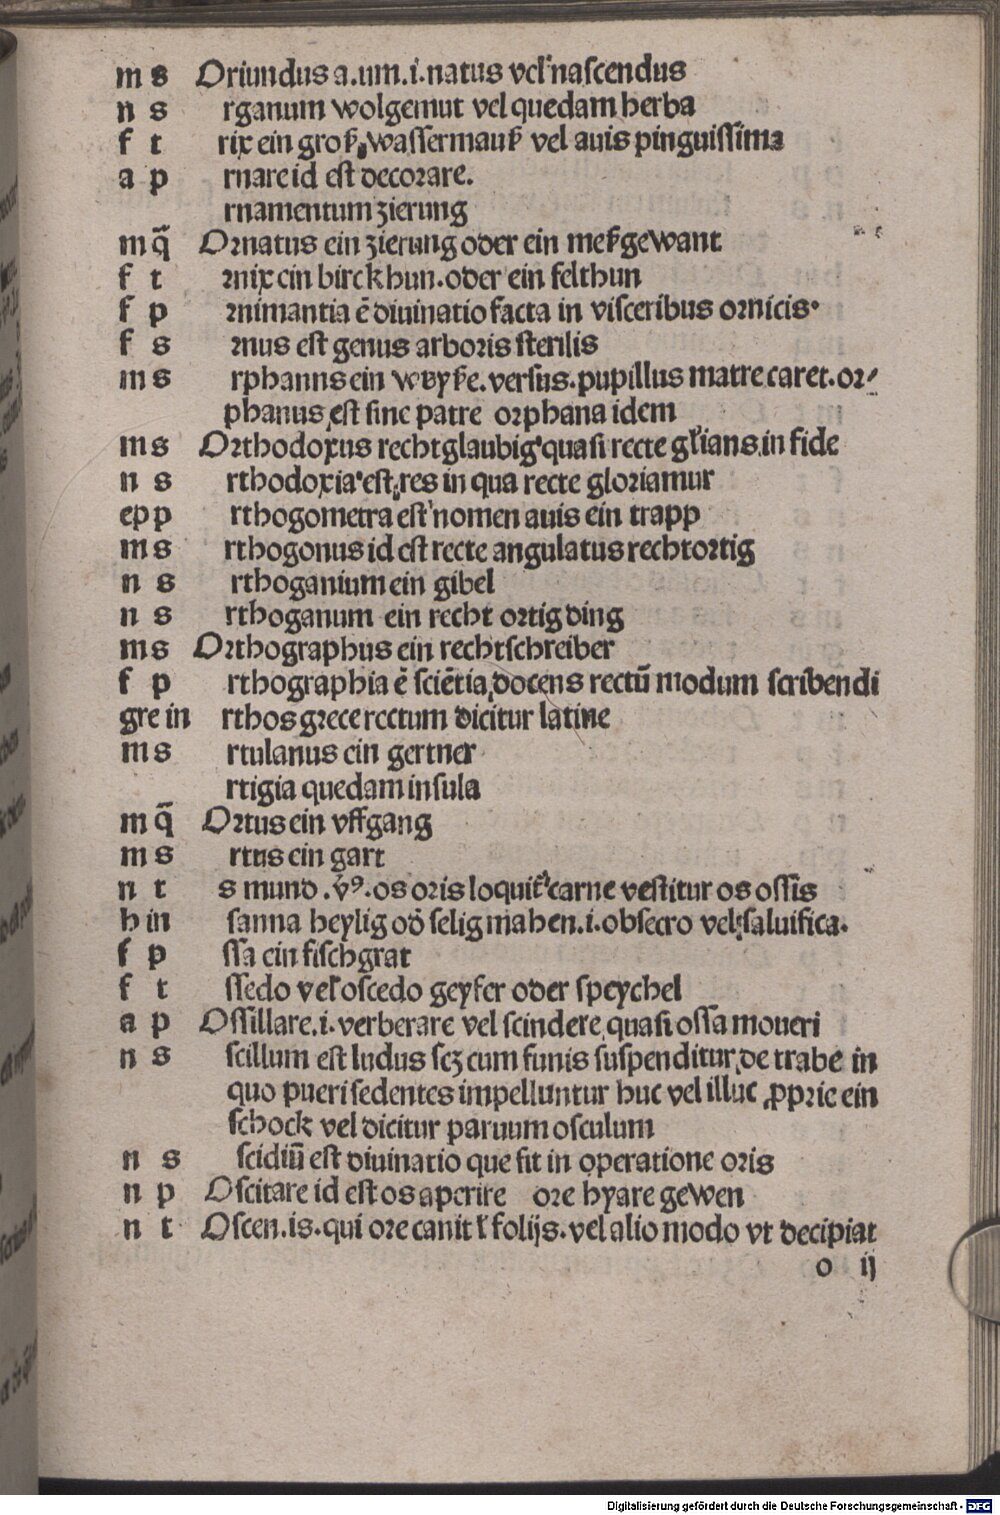 m s Oriundus a.um.i.natus vel nascendus
n s rganum wolgemut vel quedam herba
f t rix ein groß wassermauß vel auis pinguissima
a p rnare id est decorare.
rnamentum zierung
m q̃ Ornatus ein zierung oder ein meßgewant
f t rnix ein birckhun.oder ein felthun
f p rnimantia ē diuinatio facta in visceribus ornicis·
f s rnus est genus arboris sterilis
m s rphanns ein weyße.versus.pupillus matre caret.or⸗
phanus est sine patre orphana idem
m s Orthodoxus recht glaubig quasi recte gl'ians in fide
n s rthodoxia est res in qua recte gloriamur
ep p rthogometra est nomen auis ein trapp
m s rthogonus id est recte angulatus rechtortig
n s rthoganium ein gibel
n s rthoganum ein recht ortig ding
m s Orthographus ein rechtschreiber
f p rthographia ē sciētia docens rectū modum scribendi
gre in rthos grece rectum dicitur latine
m s rtulanus ein gertner
rtigia quedam insula
m q̃ Ortus ein vffgang
m s rtus ein gart
n t s mund .v̓ꝰ.os oris loquit᷑ carne vestitur os ossis
h in sanna heylig od̓ selig mahen.i.obsecro vel saluifica.
f p ssa ein fischgrat
f t ssedo vel' oscedo geyfer oder speychel
a p Ossillare.i.verberare vel scindere quasi ossa moueri
n s scillum est ludus scz cum funis suspenditur de trabe in
quo pueri sedentes impelluntur huc vel illuc ꝓprie ein
schock vel dicitur paruum osculum
n s scidiū est diuinatio que fit in operatione oris
n p Oscitare id est os aperire ore hyare gewen
n t Oscen.is.qui ore canit l' folijs.vel alio modo vt decipiat
o ij
Digitalisierung gefördert durch die Deutsche Forschungsgemeinschaft - DFG